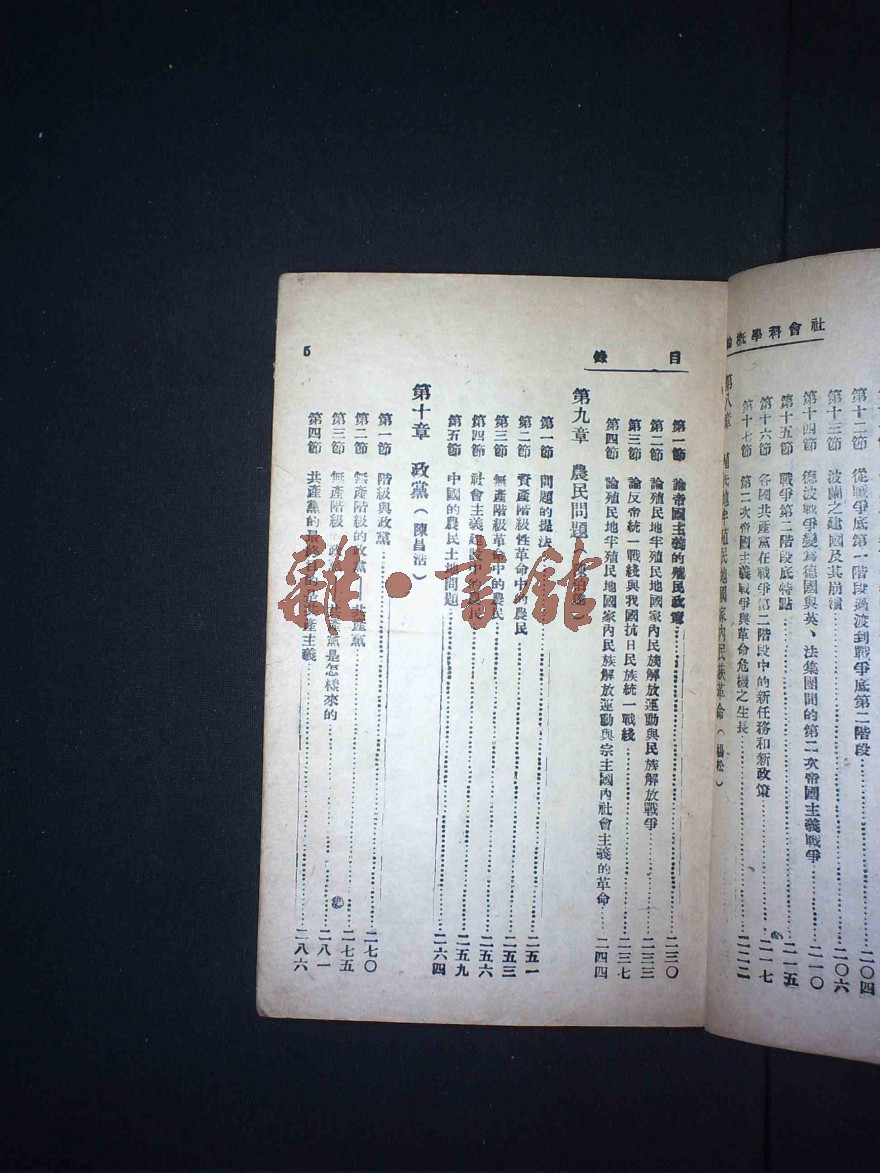 社會科學概論
第十二節 從戰爭底第一階段過渡到戰爭底第二階段……二〇四
第十三節 波蘭之建國及其崩潰……二〇六
第十四節 德波戰爭變爲德國與英、法集團間的第二次帝國主義戰爭……二一〇
第十五節 戰爭第二階段底特點……二一五
第十六節 各國共產黨在戰爭第二階段中的新任務和新政策……二一七
第十七節 第二次帝國主義戰爭與革命危機之生長……二二二
第八章 殖民地半殖民地國家內民族革命(楊松)
目錄
5
第一節 論帝國主義的殖民政策……二三〇
第二節 論殖民地半殖民地國家內民族解放運動與民族解放戰爭……二三三
第三節 論反帝統一戰綫與我國抗日民族統一戰綫……二三七
第四節 論殖民地半殖民地國家內民族解放運動與宗主國內社會主義的革命……二四四
第九章 農民問題
第一節 問題的提法……二五一
第二節 資產階級性革命中的農民……二五三
第三節 無產階級革命中的農民……二五六
第四節 社會主義建設中的農民……二五九
第五節 中國的農民土地問題……二六四
第十章 政黨(陳昌浩)
第一節 階級與政黨……二七〇
第二節 無產階級的政黨 共產黨……二七五
第三節 無產階級的政黨 共產黨是怎樣來的……二八一
第四節 共產黨的最終目的是共產主義……二八六
雜·書館